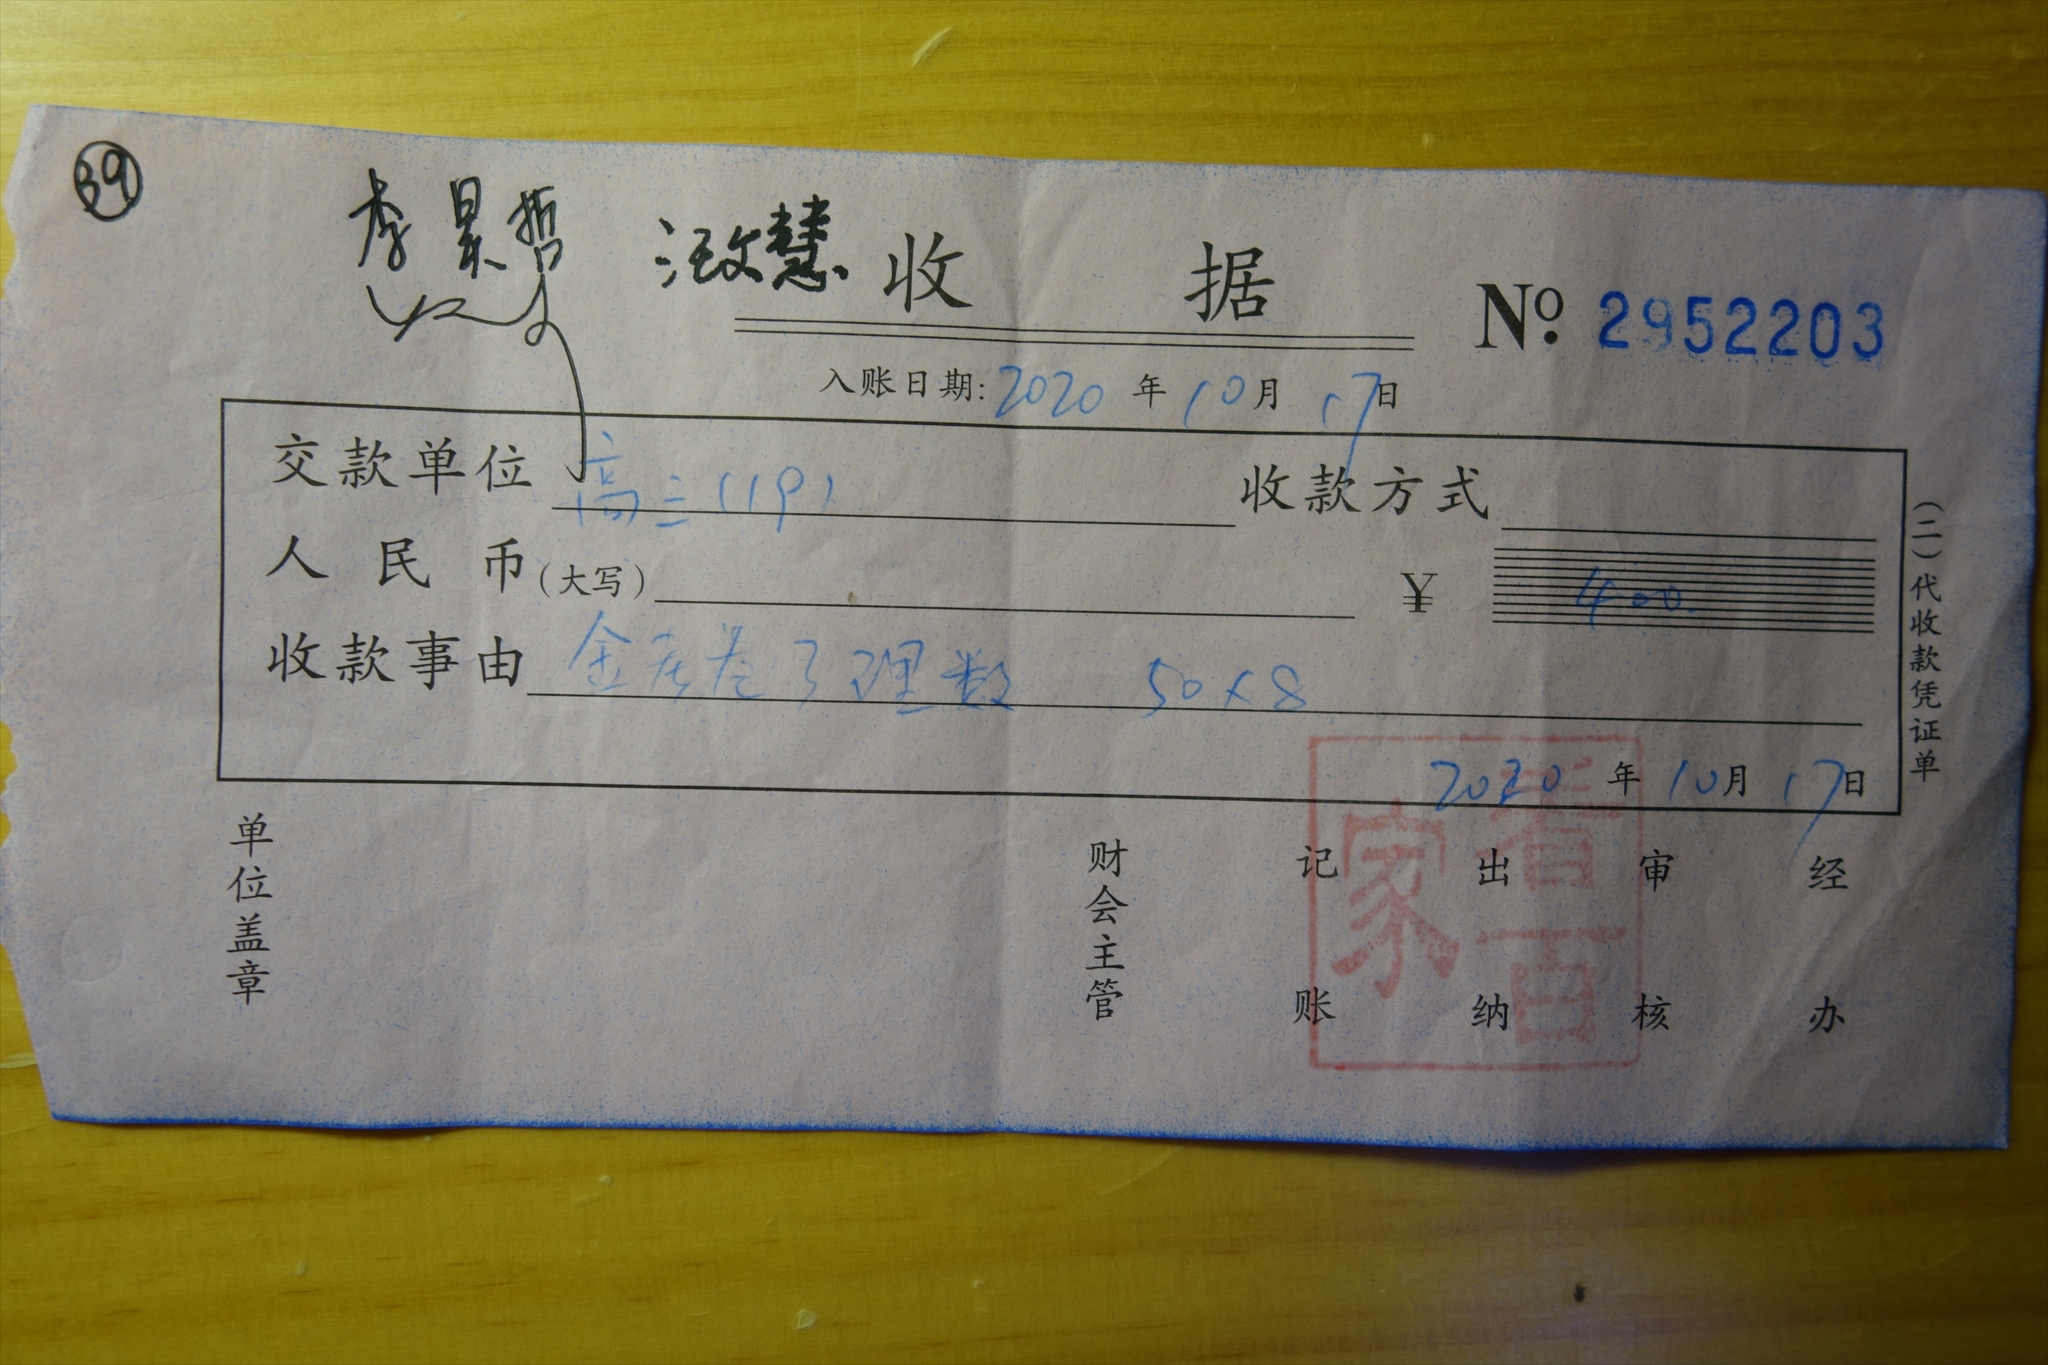 39
李昊哲 汪文慧
收据
№ 2952203
入账日期: 2020 年 10 月 17 日
交款单位 高三(19) 收款方式
人民币(大写) ¥ 400.
收款事由 金考卷 理数 50×8
2020 年 10 月 17 日
(二)代收款凭证单
单位盖章 财会主管 记账 出纳 审核 经办